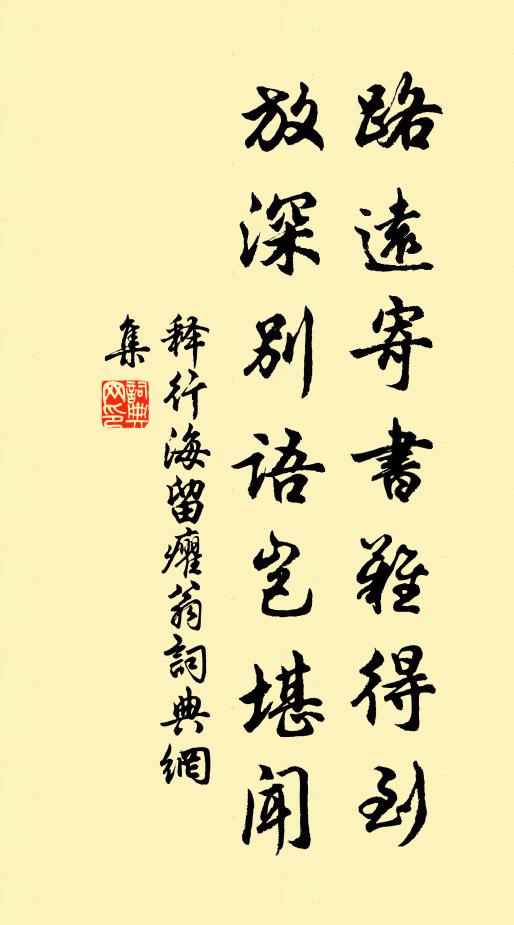 路遠寄書難得到
放深別語豈堪聞
释行海留癯翁詞典網
集
詞典
网印